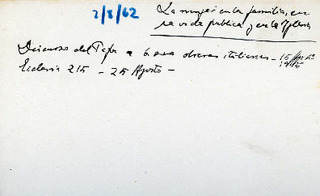 2/8/62
La mujer en la familia, en
la vida pública y en la Iglesia
Discurso del Papa a obreras italianas - 15 Agosto
Ecclesia 215 - 25 Agosto -